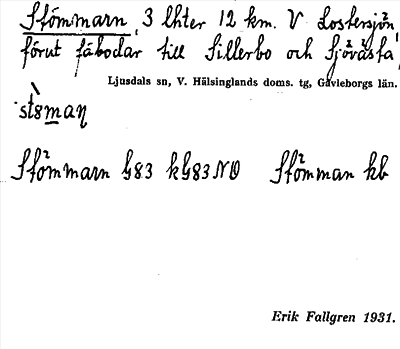 Stömmarn, 3 lhter 12 km. V Lostersjön,
förut fäbodar till Sillerbo och Sjövästa,
Ljusdals sn, V. Hälsinglands doms. tg, Gävleborgs län.
Stömmarn G83 kG83NO Stömman kb
Erik Fallgren 1931.